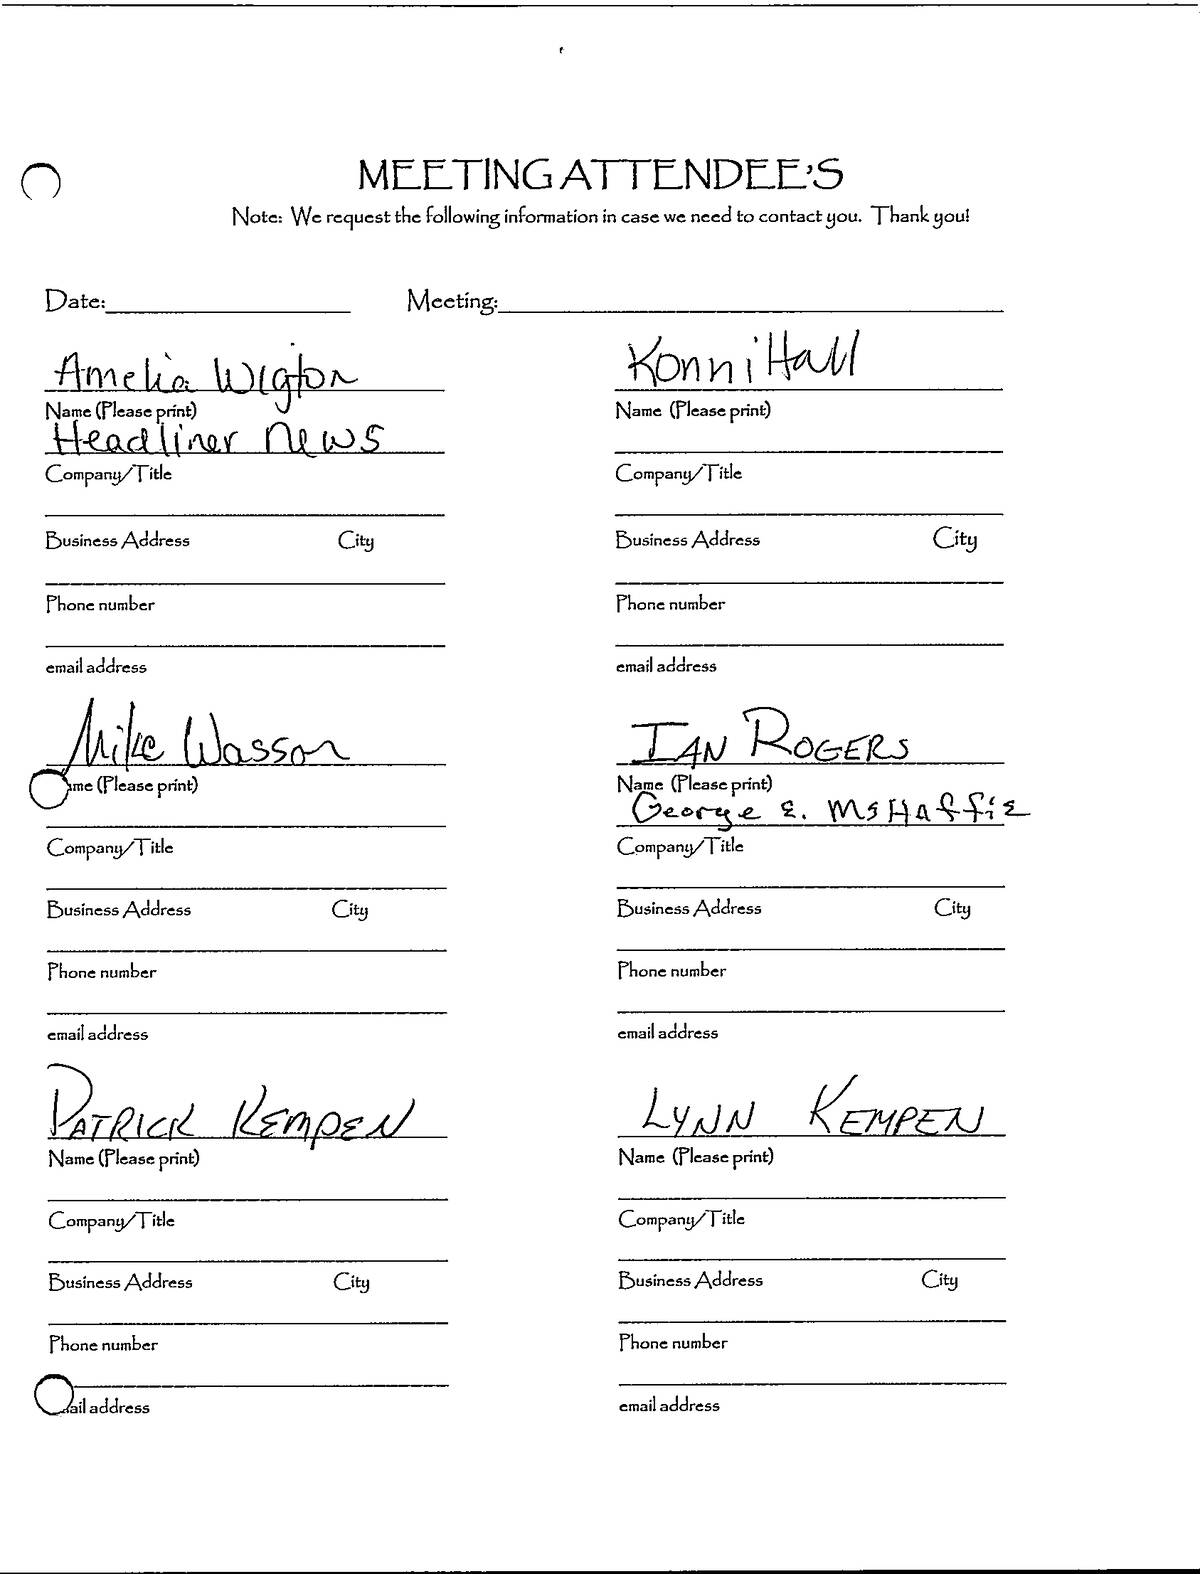 MEETING ATTENDEE'S
Note: We request the following information in case we need to contact you. Thank you!
Date: Meeting:
Amelia Wigton
Name (Please print)
Headliner News
Company/Title
Business Address City
Phone number
email address
Konni Hall
Name (Please print)
Company/Title
Business Address City
Phone number
email address
Mike Wasson
ame (Please print)
Company/Title
Business Address City
Phone number
email address
IAN ROGERS
Name (Please print)
George E. McHaffie
Company/Title
Business Address City
Phone number
email address
PATRICK KEMPEN
Name (Please print)
Company/Title
Business Address City
Phone number
ail address
LYNN KEMPEN
Name (Please print)
Company/Title
Business Address City
Phone number
email address